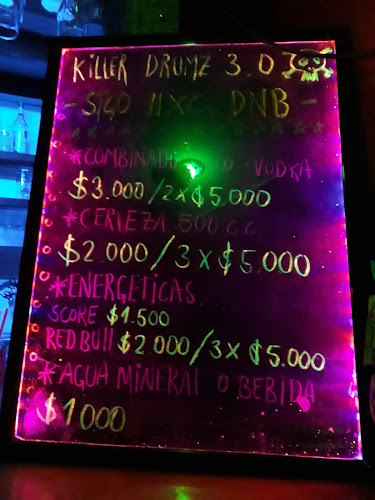 KILLER DRUMZ 3.0
- STGO HXC DNB -
*COMBINADO - VODKA
$3.000/2x$5.000
*CERVEZA 500 C.C.
$2.000/3x$5.000
*ENERGETICAS
SCORE $1.500
RED BUll $2.000/3x$5.000
*AGUA MINERAl O BEBIDA
$1000